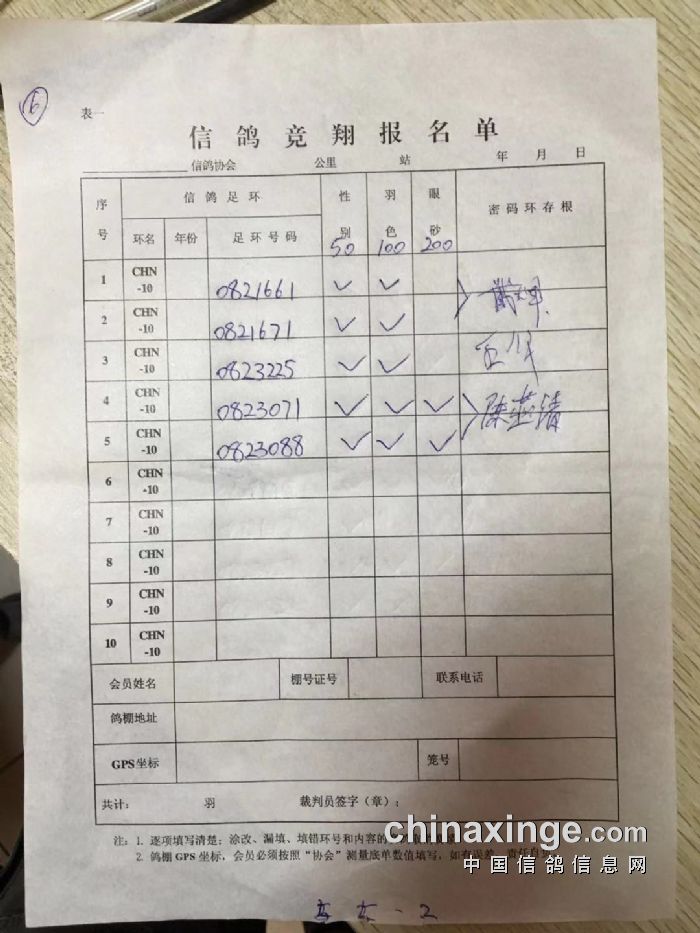 6
表一
信鸽竞翔报名单
信鸽协会 公里 站 年 月 日
序号 信鸽足环 性别 羽色 眼砂 密码环存根
环名 年份 足环号码 50 100 200
1 CHN-10 0821661 ✓ ✓
2 CHN-10 0821671 ✓ ✓
3 CHN-10 0823225 ✓ ✓
4 CHN-10 0823071 ✓ ✓ ✓ 陈基清
5 CHN-10 0823088 ✓ ✓ ✓
6 CHN-10
7 CHN-10
8 CHN-10
9 CHN-10
10 CHN-10
会员姓名 棚号证号 联系电话
鸽棚地址
GPS坐标 笼号
共计： 羽 裁判员签字（章）：
注：1. 逐项填写清楚；涂改、漏填、填错环号和内容的
2. 鸽棚 GPS 坐标，会员必须按照“协会”测量底单数值填写，如有误差，责任自
chinaxinge.com
中国信鸽信息网